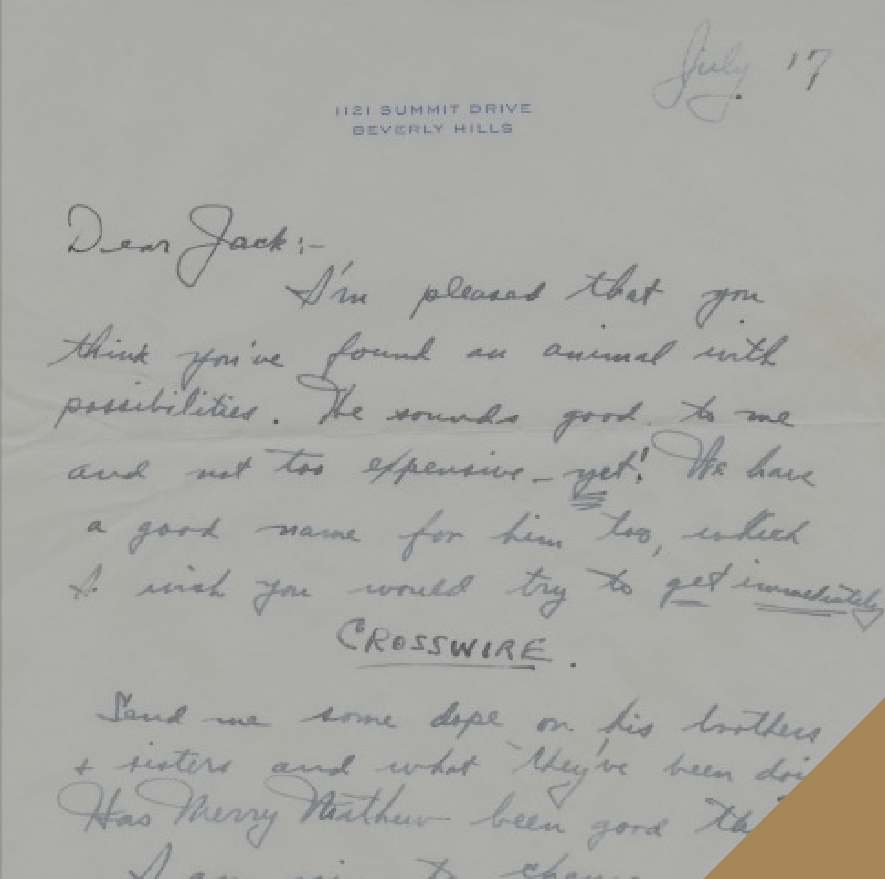 July 17
1121 SUMMIT DRIVE
BEVERLY HILLS
Dear Jack:-
I'm pleased that you
think you've found an animal with
possibilities. He sounds good to me
and not too expensive - yet! We have
a good name for him too, which
I wish you would try to get immediately
CROSSWIRE.
Send me some dope on his brothers
+ sisters and what they've been
Has Merry been good
I am to